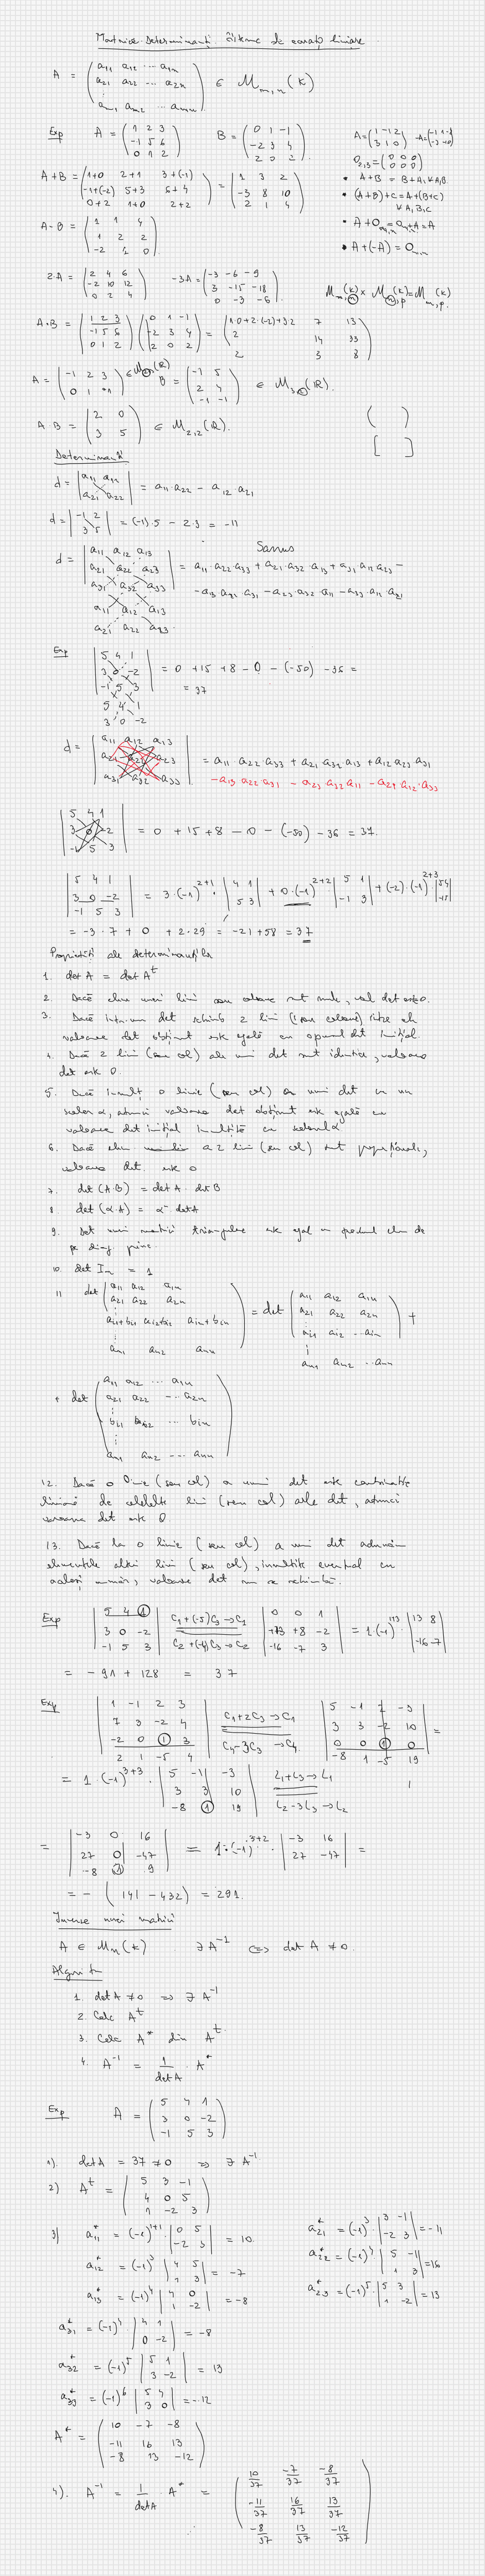 Matrice Determinanți Sisteme de ecuații liniare
A = ( a11 a12 ... a1n
a21 a22 ... a2n
⋮
am1 am2 ... amn ) ∈ M m,n (K)
Exp A = ( 1 2 3 B = ( 0 1 -1 A = ( 1 -1 2 -A = ( -1 1 -2
-1 5 6 -2 3 4 3 1 0 ) -3 -1 0 )
0 1 2 ) 2 0 2 ) O2,3 = ( 0 0 0
0 0 0 )
A+B = ( 1+0 2+1 3+(-1) = ( 1 3 2
-1+(-2) 5+3 6+4 -3 8 10
0+2 1+0 2+2 ) 2 1 4 )
• A+B = B+A, ∀ A,B.
• (A+B)+C = A+(B+C)
∀ A,B,C
• A+Om,n = Om,n+A = A
• A+(-A) = Om,n
A-B = ( 1 1 4
1 2 2
-2 1 0 )
2·A = ( 2 4 6 -3A = ( -3 -6 -9
-2 10 12 3 -15 -18
0 2 4 ) 0 -3 -6 )
M m,n (K) × M n,p (K) = M m,p (K)
A·B = ( 1 2 3 ( 0 1 -1 = ( 1·0+2·(-2)+3·2 7 13
-1 5 6 -2 3 4 2 14 33
0 1 2 ) 2 0 2 ) 2 3 8 )
A = ( -1 2 3 ∈ M (R) B = ( -1 5 ∈ M 3,2 (R).
0 1 -1 ) 2 4
-1 -1 )
A·B = ( 2 0 ∈ M 2,2 (R).
3 5 )
( )
[ ]
Determinanți
d = | a11 a12
a21 a22 | = a11·a22 - a12·a21
d = | -1 2
3 5 | = (-1)·5 - 2·3 = -11
Sarrus
d = | a11 a12 a13
a21 a22 a23 | = a11·a22·a33 + a21·a32·a13 + a31·a12·a23 -
a31 a32 a33 - a13·a22·a31 - a23·a32·a11 - a33·a12·a21
a11 a12 a13
a21 a22 a23
Exp | 5 4 1
3 0 -2 | = 0 + 15 + 8 - 0 - (-50) - 36 =
-1 5 3 = 37
5 4 1
3 0 -2
d = | a11 a12 a13
a21 a22 a23 | = a11·a22·a33 + a21·a32·a13 + a12·a23·a31
a31 a32 a33 - a13·a22·a31 - a23·a32·a11 - a21·a12·a33
| 5 4 1
3 0 -2 | = 0 + 15 + 8 - 0 - (-50) - 36 = 37.
-1 5 3
| 5 4 1
3 0 -2 | = 3·(-1)^2+1 · | 4 1 5 3 | + 0·(-1)^2+2 | 5 1 -1 3 | + (-2)·(-1)^2+3 | 5 4 -1 5 |
-1 5 3
= -3·7 + 0 + 2·29 = -21+58 = 37
Proprietăți ale determinanților
1. det A = det A^t
2. Dacă elem unei linii sau coloane sunt nule, val det este 0.
3. Dacă într-un det schimb 2 linii (sau coloane) între ele
valoarea det obținut este egală cu opusul det inițial.
4. Dacă 2 linii (sau col) ale unui det sunt identice, valoarea
det este 0.
5. Dacă înmulț o linie (sau col) a unui det cu un
scalar α, atunci valoarea det obținut este egală cu
valoarea det inițial înmulțită cu scalarul α
6. Dacă elem a 2 linii (sau col) sunt proporționale,
valoarea det. este 0
7. det (A·B) = det A · det B
8. det (α·A) = α^n det A
9. Det unei matrici triunghiulare este egal cu produsul elem de
pe diag princ.
10. det In = 1
11. det ( a11 a12 a1n = det ( a11 a12 a1n +
a21 a22 a2n a21 a22 a2n
⋮
ai1+bi1 ai2+bi2 ain+bin ai1 ai2 ... ain
⋮
an1 an2 ann ) an1 an2 ... ann )
+ det ( a11 a12 ... a1n
a21 a22 ... a2n
⋮
bi1 bi2 ... bin
⋮
an1 an2 ... ann )
12. Dacă o linie (sau col) a unui det este combinație
liniară de celelalte linii (sau col) ale det, atunci
valoarea det este 0.
13. Dacă la o linie (sau col) a unui det adunăm
elementele altei linii (sau col), înmulțite eventual cu
același număr, valoarea det nu se schimbă.
Exp | 5 4 1 C1+(-5)C3→C1 | 0 0 1
3 0 -2 | | 13 8 -2 | = 1·(-1)^1+3 | 13 8
-1 5 3 C2+(-4)C3→C2 -16 -7 3 -16 -7 |
= -91 + 128 = 37
Exp | 1 -1 2 3 | 5 -1 2 -3
7 3 -2 4 C1+2C3→C1 3 3 -2 10 | =
-2 0 1 3 C4-3C3→C4 0 0 1 0
2 1 -5 4 | -8 1 -5 19 |
= 1·(-1)^3+3 · | 5 -1 -3 L1+L3→L1
3 3 10
-8 1 19 | L2-3L3→L2
= | -3 0 16
27 0 -47 | = 1·(-1)^3+2 · | -3 16 27 -47 | =
-8 1 9
= - ( 141 - 432) = 291.
Inversa unei matrici
A ∈ Mn(K) ∃ A^-1 ⟺ det A ≠ 0.
Algoritm
1. det A ≠ 0 ⇒ ∃ A^-1
2. Calc A^t
3. Calc A* din A^t
4. A^-1 = 1/det A · A*
Exp A = ( 5 4 1
3 0 -2
-1 5 3 )
1). det A = 37 ≠ 0 ⇒ ∃ A^-1
2) A^t = ( 5 3 -1
4 0 5
1 -2 3 )
3) a11* = (-1)^1+1 | 0 5 -2 3 | = 10.
a12* = (-1)^3 | 4 5 1 3 | = -7
a13* = (-1)^4 | 4 0 1 -2 | = -8
a21* = (-1)^3 | 3 -1 -2 3 | = -11
a22* = (-1)^4 | 5 -1 1 3 | = 16
a23* = (-1)^5 · | 5 3 1 -2 | = 13
a31* = (-1)^4 · | 4 1 0 -2 | = -8
a32* = (-1)^5 | 5 1 3 -2 | = 13
a33* = (-1)^6 | 5 4 3 0 | = -12
A* = ( 10 -7 -8
-11 16 13
-8 13 -12 )
4). A^-1 = 1/det A A* = ( 10/37 -7/37 -8/37
-11/37 16/37 13/37
-8/37 13/37 -12/37 )